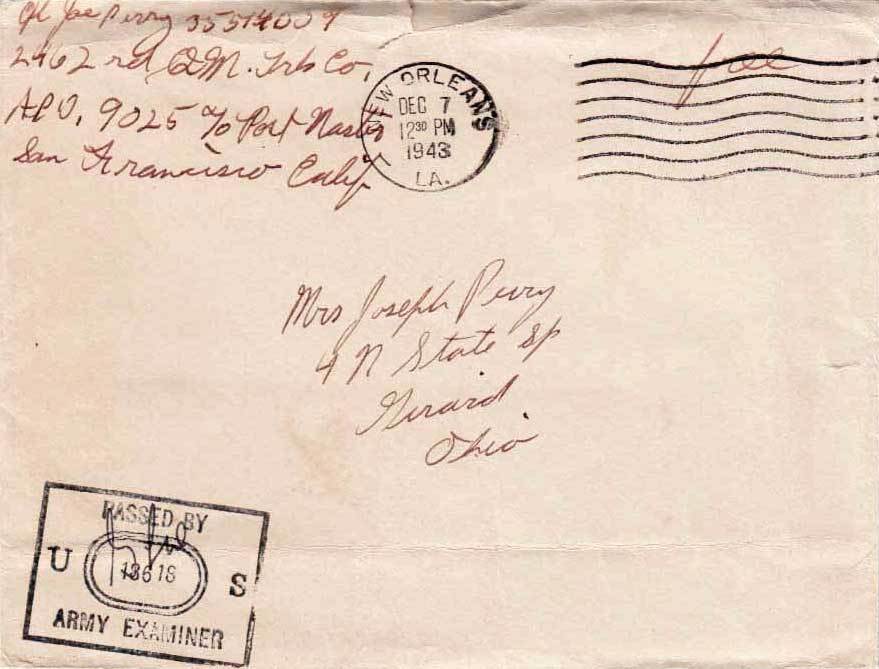 Joe Perry 35514009
2462 rd Q.M. Trk Co.
APO. 9025 c/o Post Master
San Francisco Calif
NEW ORLEANS
DEC 7
12 30 PM
1943
LA.
free
Mrs Joseph Perry
4 N State
Girard
Ohio
PASSED BY
U S
18618
ARMY EXAMINER